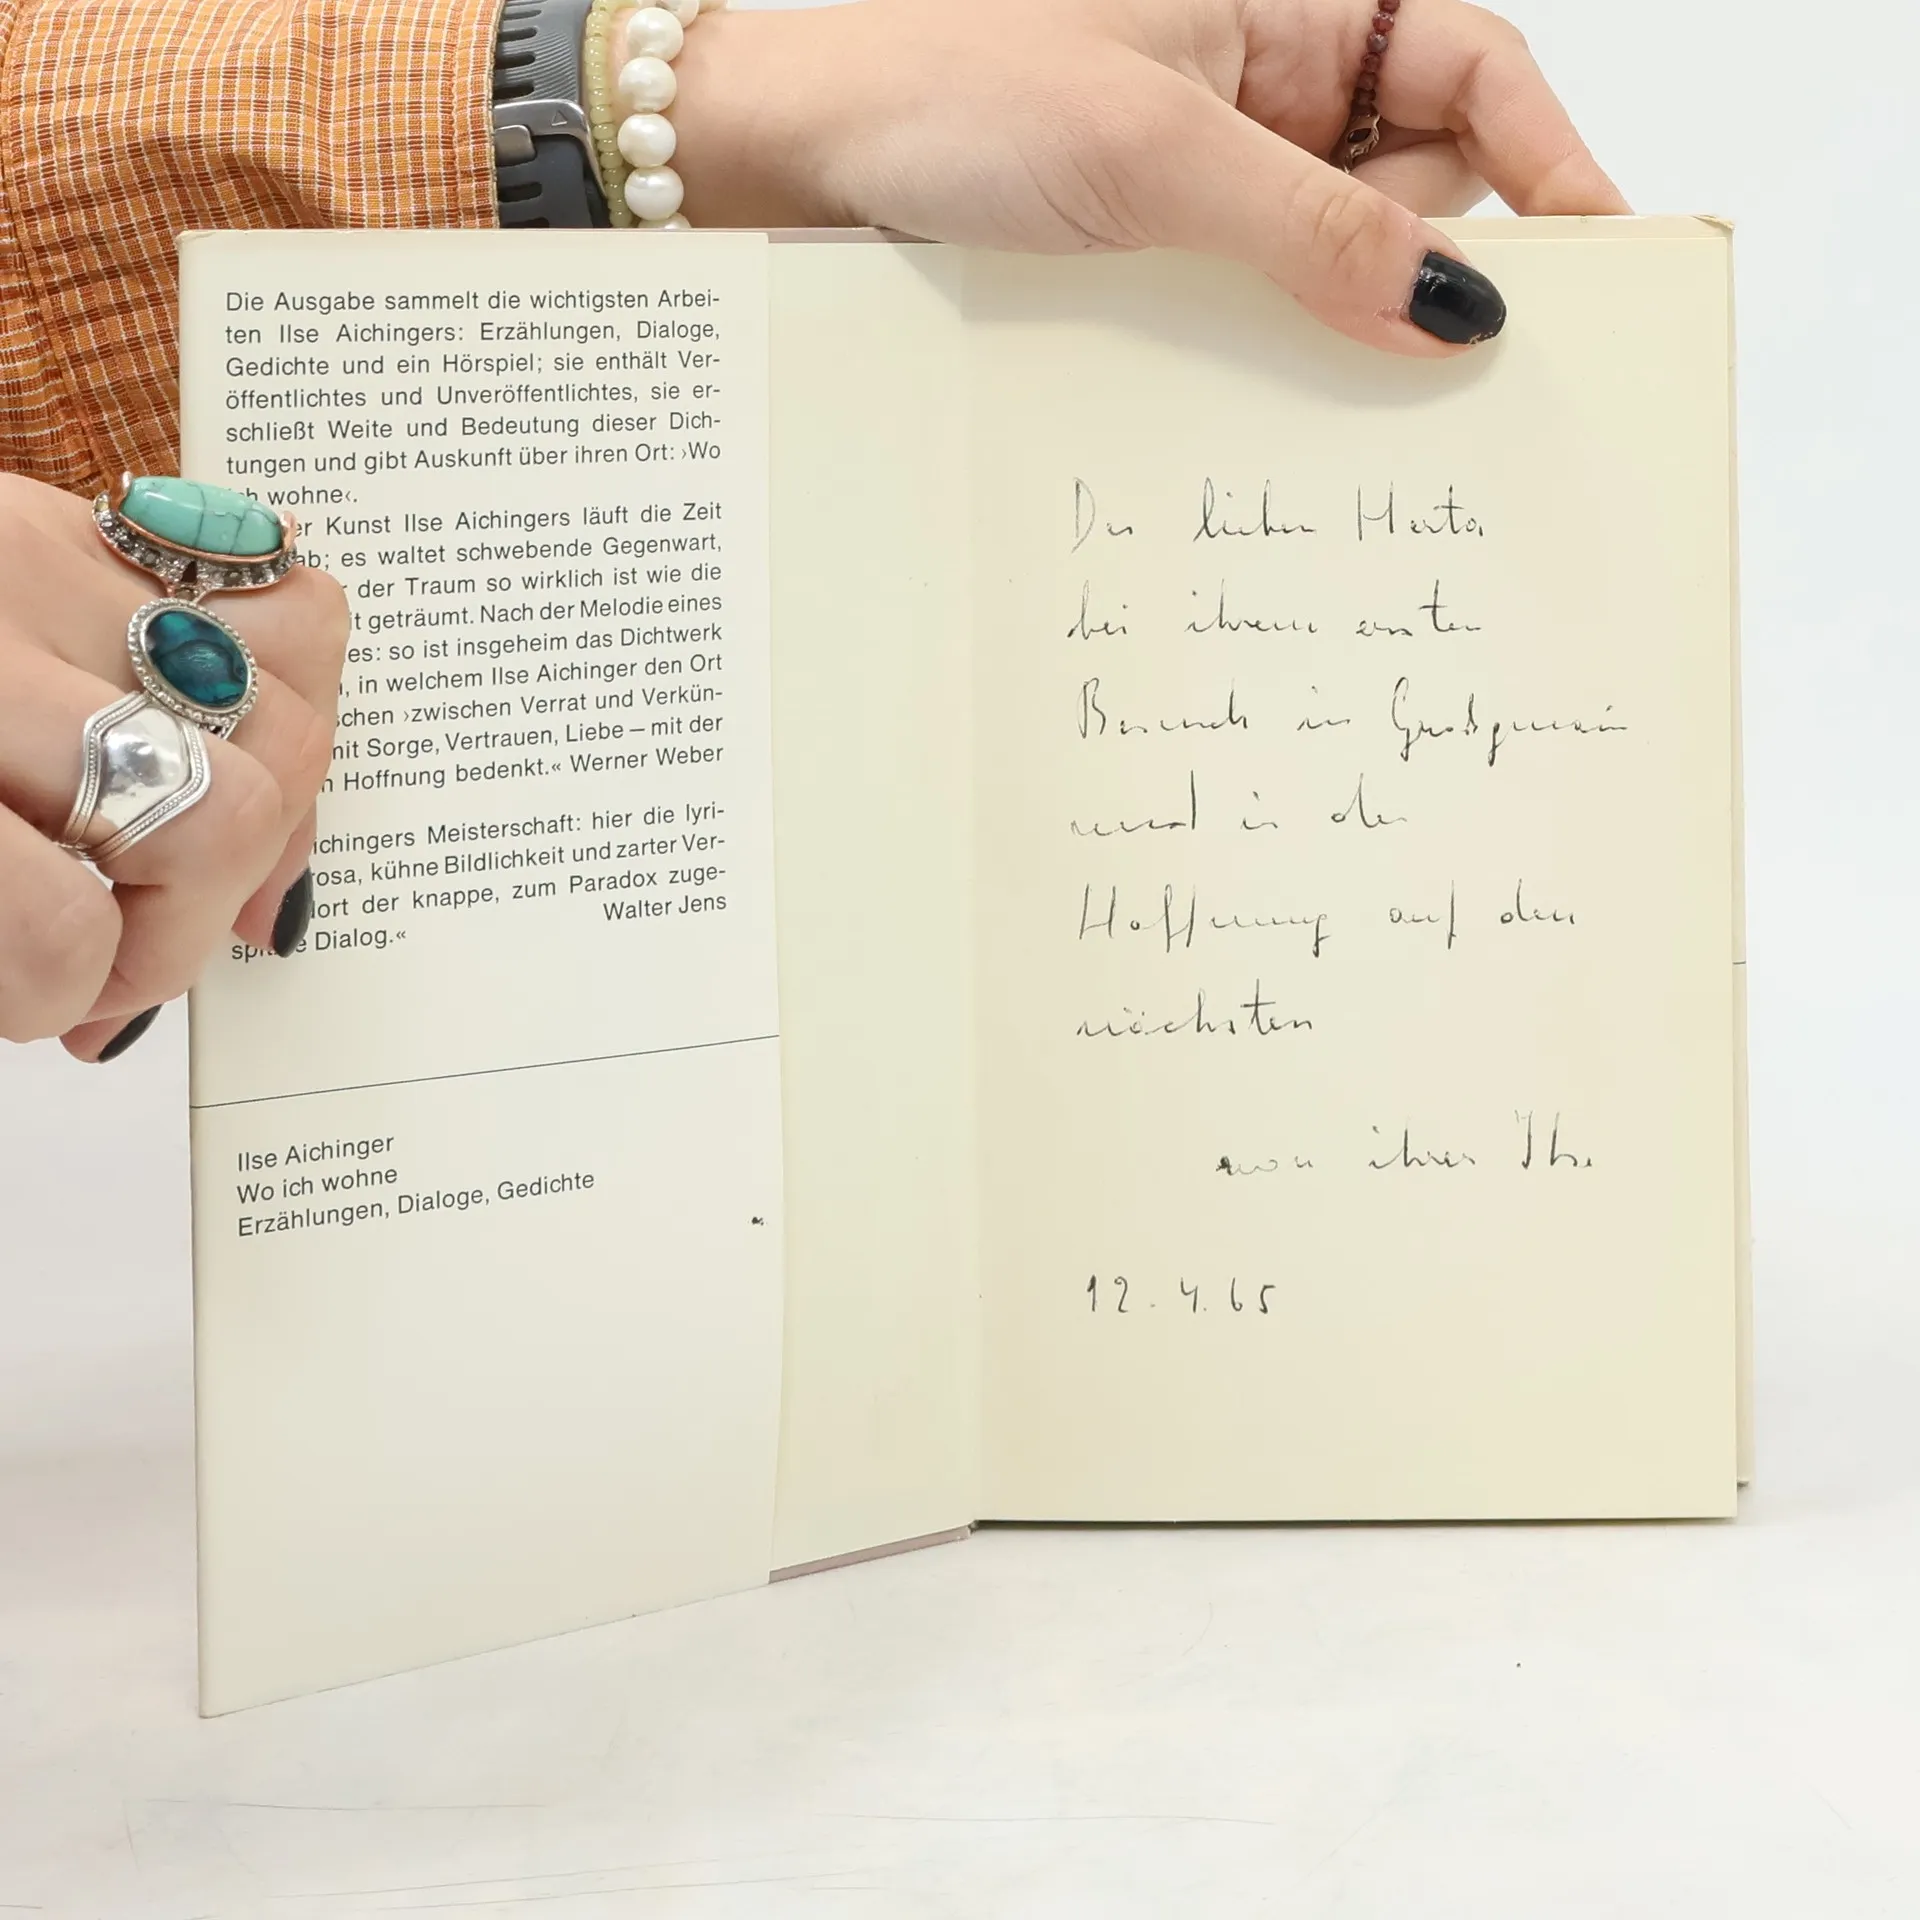 Die Ausgabe sammelt die wichtigsten Arbei-
ten Ilse Aichingers: Erzählungen, Dialoge,
Gedichte und ein Hörspiel; sie enthält Ver-
öffentlichtes und Unveröffentlichtes, sie er-
schließt Weite und Bedeutung dieser Dich-
tungen und gibt Auskunft über ihren Ort: ›Wo
wohne‹.
Kunst Ilse Aichingers läuft die Zeit
ab; es waltet schwebende Gegenwart,
der Traum so wirklich ist wie die
geträumt. Nach der Melodie eines
so ist insgeheim das Dichtwerk
in welchem Ilse Aichinger den Ort
›zwischen Verrat und Verkün-
mit Sorge, Vertrauen, Liebe – mit der
Hoffnung bedenkt.« Werner Weber
Meisterschaft: hier die lyri-
kühne Bildlichkeit und zarter Ver-
der knappe, zum Paradox zuge-
Dialog.« Walter Jens
Ilse Aichinger
Wo ich wohne
Erzählungen, Dialoge, Gedichte
Der lieben Herta
bei ihrem ersten
Besuch in Großgmain
und in der
Hoffnung auf den
nächsten
von ihrer Ilse
12.4.65